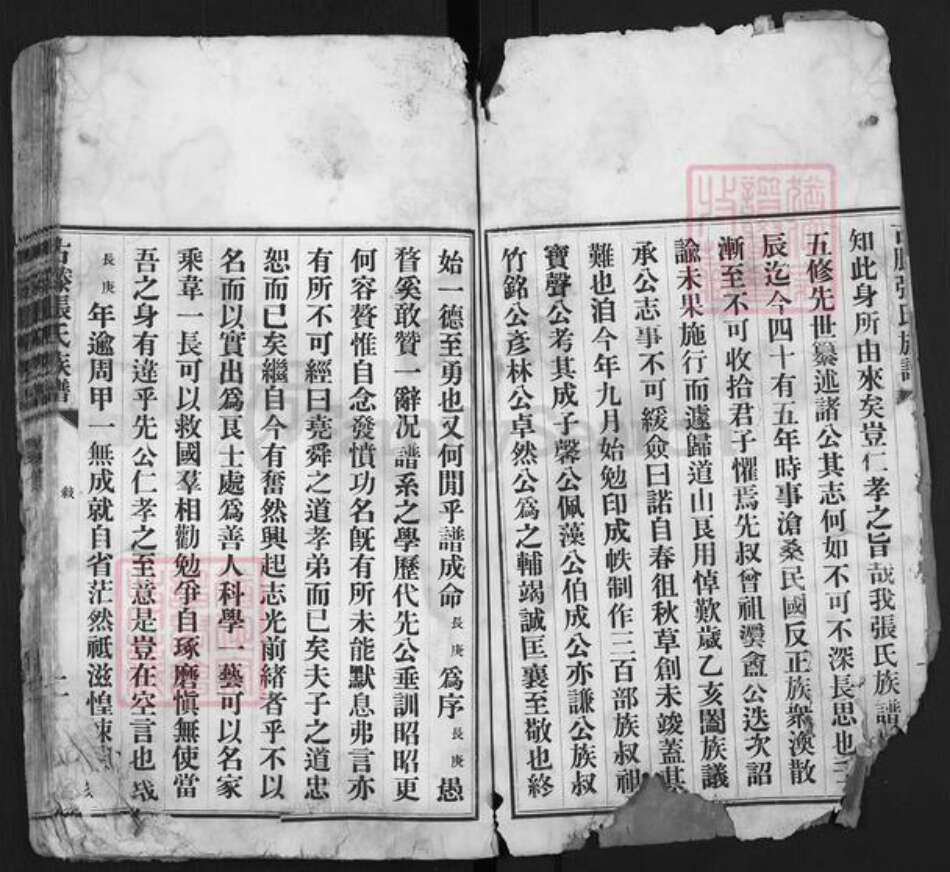 知此身所由來矣豈仁孝之旨哉我張氏族譜
五修先世纂述諸公其志何如不可不深長思也
辰迄今四十有五年時事滄桑民國反正族衆渙散
漸至不可收拾君子懼焉先叔曾祖澳盦公迭次詔
諭未果施行而遽歸道山良用悼歎歲乙亥闔族議
承公志事不可緩僉曰諾自春徂秋草創未竣蓋其
難也洎今年九月始勉印成帙制作三百部族叔祖
寶聲公考其成子馨公佩藻公伯成公亦謙公族叔
竹銘公彥林公卓然公爲之輔竭誠匡襄至敬也終
始一德至勇也又何間乎譜成命長庚爲序長庚愚
瞀奚敢贊一辭况譜系之學歷代先公垂訓昭昭更
何容贅惟自念發憤功名旣有所未能默息弗言亦
有所不可經曰堯舜之道孝弟而已矣夫子之道忠
恕而已矣繼自今有奮然興起志光前緒者乎不以
名而以實出爲良士處爲善人科學一藝可以名家
乘韋一長可以救國羣相勸勉爭自琢磨愼無使當
吾之身有違乎先公仁孝之至意是豈在空言也哉
長庚年逾周甲一無成就自省茫然祗滋惶悚
古滕張氏族譜
敍
二